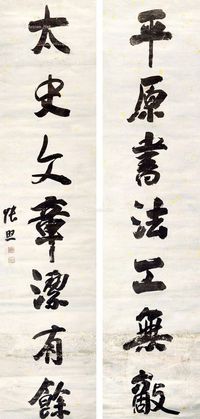 平原書法工無敵
太史文章潔有餘
張照